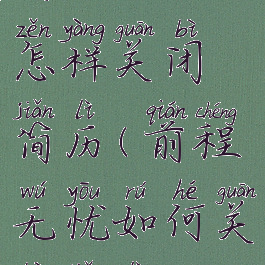 zěn yàng guān bì
怎样关闭
jiǎn lì qián chéng
简历(前程
wú yōu rú hé guān
无忧如何关